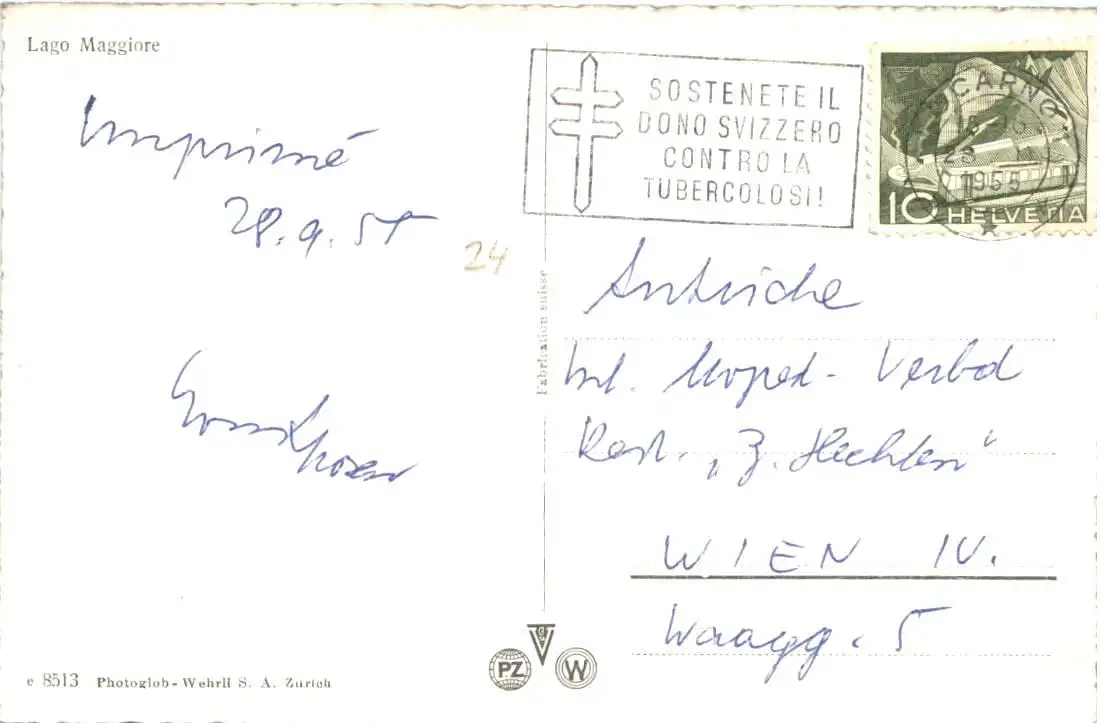 Lago Maggiore
Imprimé
28.9.55
24
SOSTENETE IL
DONO SVIZZERO
CONTRO LA
TUBERCOLOSI!
1955
10 HELVETIA
Fabrication suisse
Moped - Verbd
Rest. „Z. Hechten“
WIEN IV.
Waagg. 5
PZ
W
e 8513 Photoglob-Wehrli S. A. Zürich